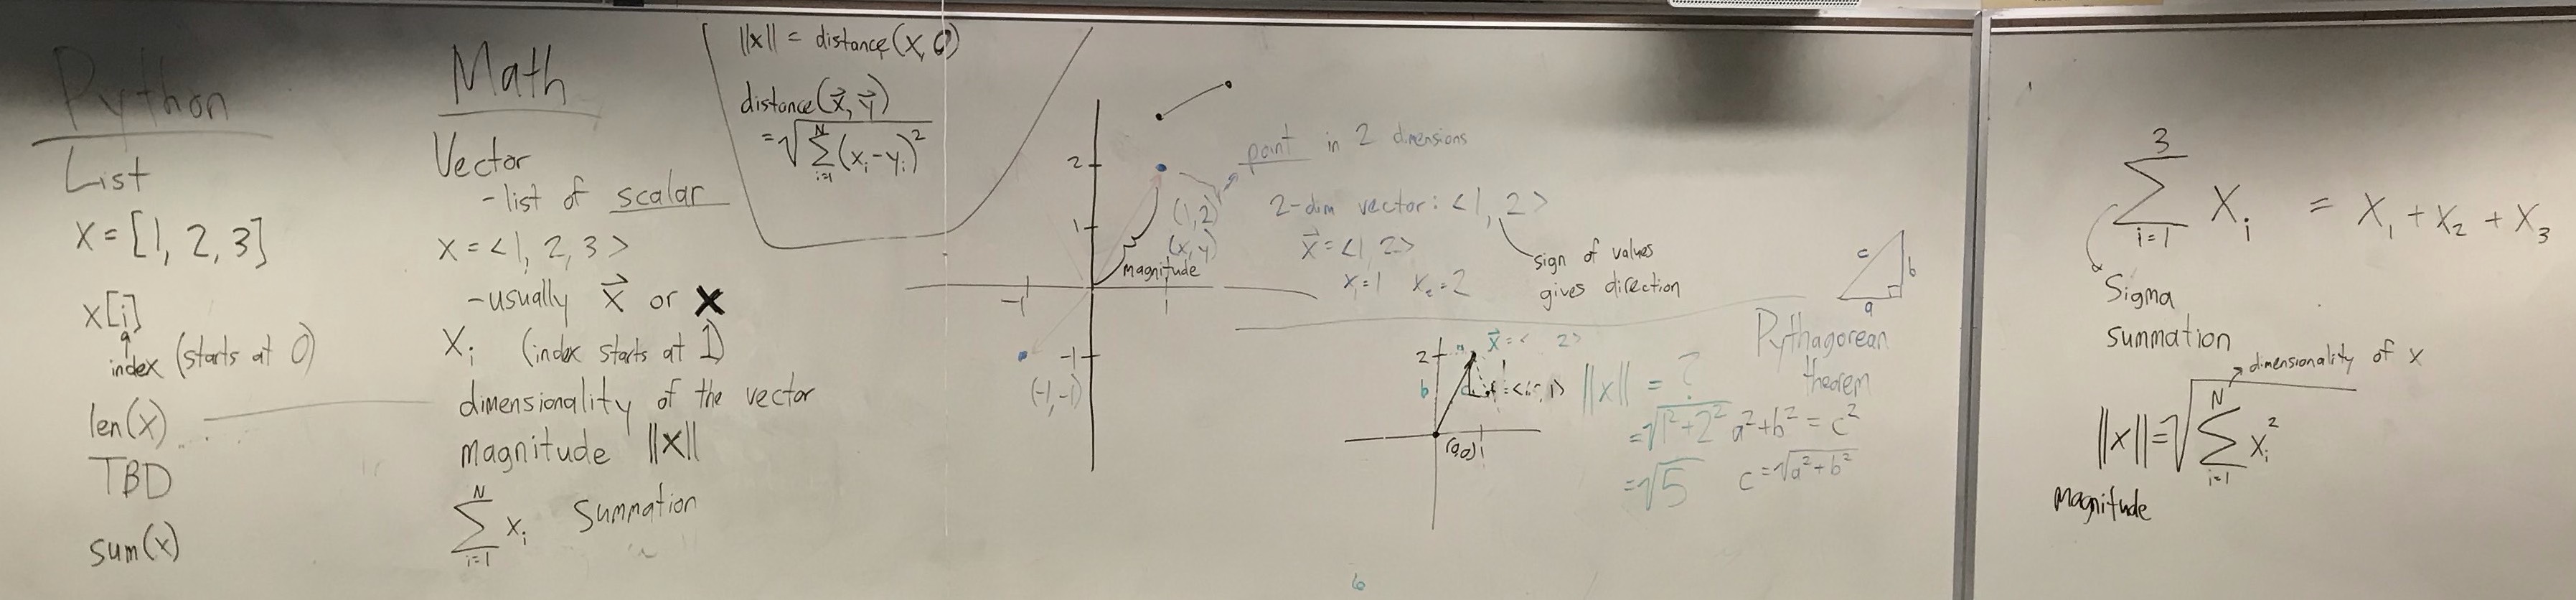 Python
List
x = [1, 2, 3]
x[i]
index (starts at 0)
len(x)
TBD
sum(x)
Math
Vector
- list of scalar
x = <1, 2, 3>
- usually x⃗ or x
xᵢ (index starts at 1)
dimensionality of the vector
magnitude ||x||
N
∑ xᵢ Summation
i=1
||x|| = distance(x, 0)
distance(x⃗, y⃗)
= √∑(xᵢ-yᵢ)²
N
i=1
2
1
-1
-1
(-1,-1)
1
(1,2)
(x,y)
magnitude
point in 2 dimensions
2-dim vector: <1, 2>
x⃗ = <1, 2>
x₁=1 x₂=2
sign of values
gives direction
2
b
(0,0)
1
x⃗ = < 2>
||x|| = ?
= √1²+2²
= √5
c
b
a
Pythagorean
theorem
a²+b² = c²
c = √a²+b²
6
3
∑ xᵢ = x₁ + x₂ + x₃
i=1
Sigma
summation
dimensionality of x
N
||x|| = √∑ xᵢ²
i=1
magnitude